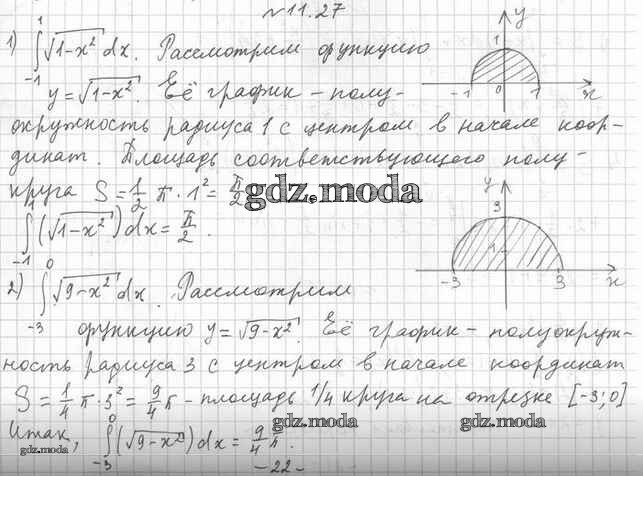 №11.27
1) ∫₋₁¹ √(1-x²) dx. Рассмотрим функцию
y = √(1-x²). Её график – полу-
окружность радиуса 1 с центром в начале коор-
динат. Площадь соответствующего полу-
круга S = 1/2 π · 1² = π/2
gdz.moda
∫₋₁¹ (√(1-x²)) dx = π/2.
y
1
-1 0 1 x
2) ∫₋₃⁰ √(9-x²) dx. Рассмотрим
функцию y = √(9-x²). Её график – полуокруж-
ность радиуса 3 с центром в начале координат
y
3
1
-3 3 x
S = 1/4 π · 3² = 9/4 π – площадь 1/4 круга на отрезке [-3; 0]
Итак, ∫₋₃⁰ (√(9-x²)) dx = 9/4 π.
gdz.moda
gdz.moda
gdz.moda
-22-